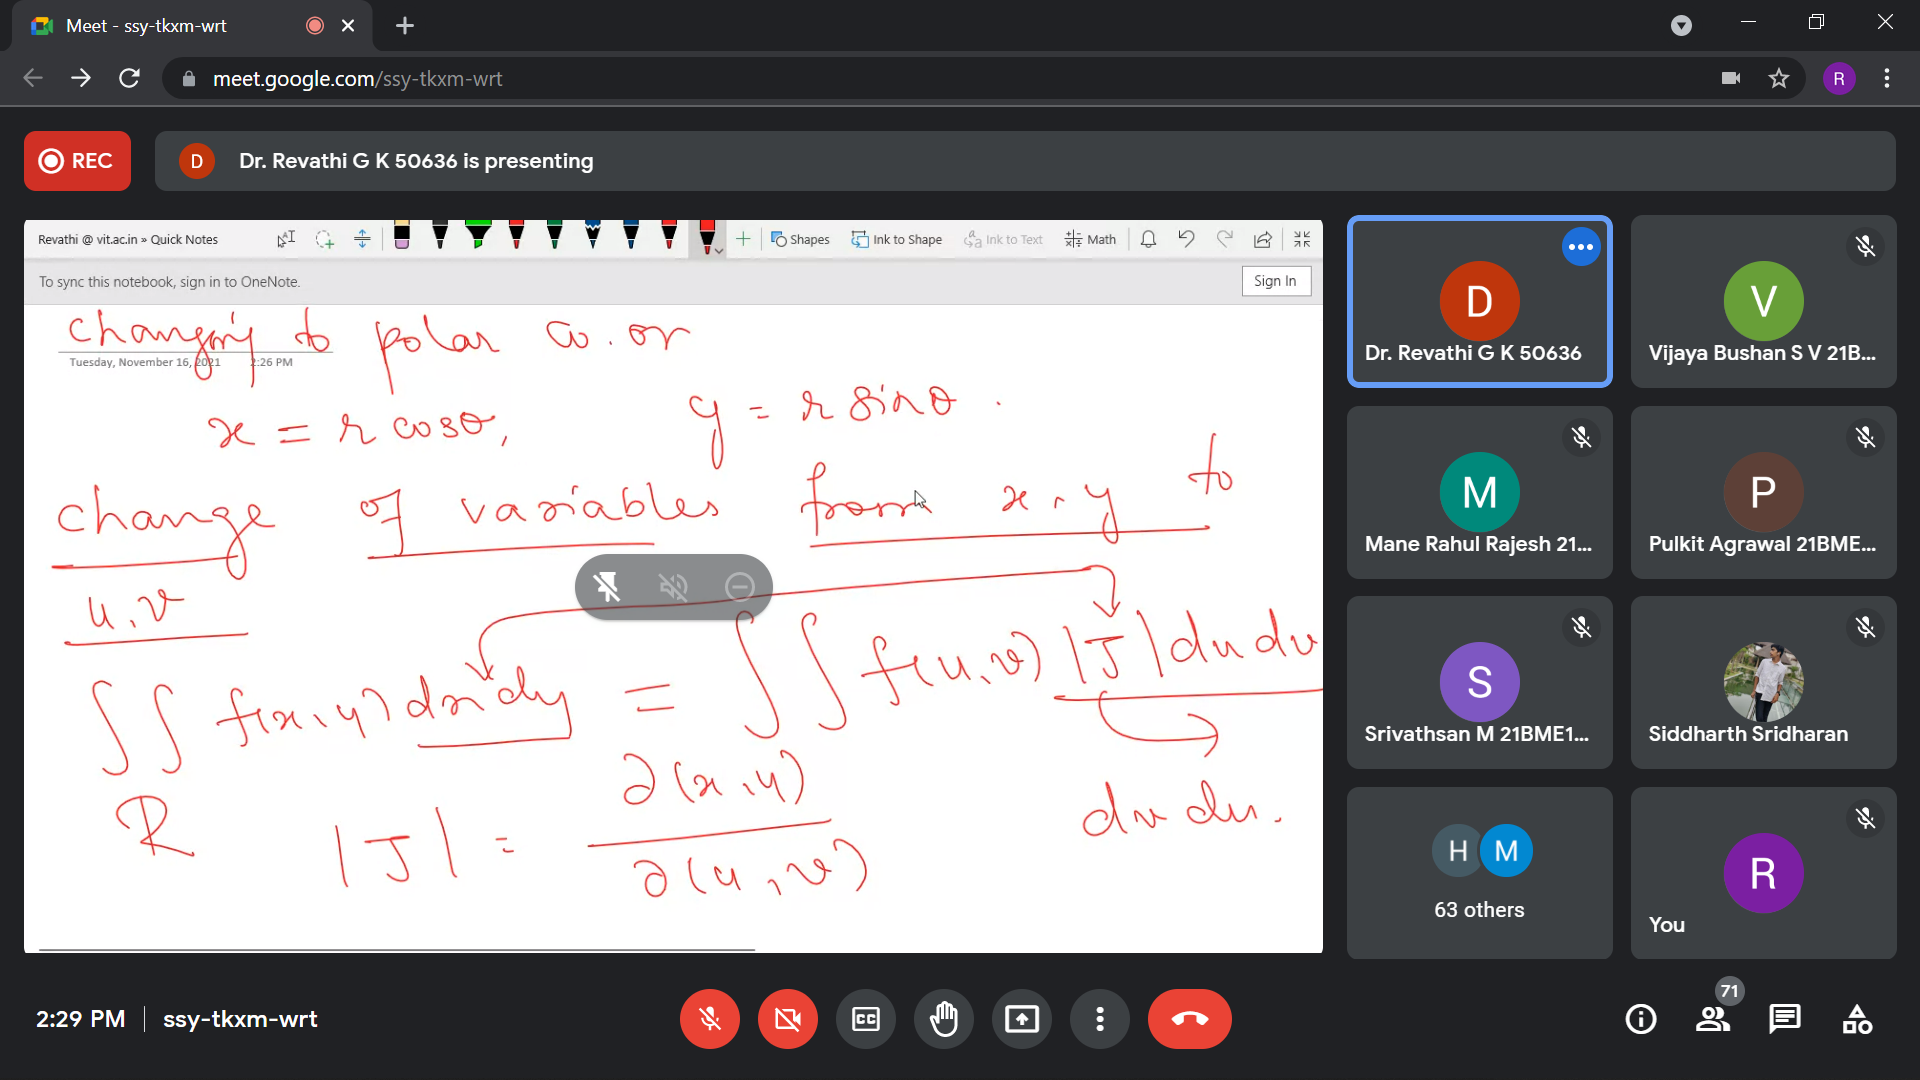 Meet - ssy-tkxm-wrt
meet.google.com/ssy-tkxm-wrt
R
REC
D
Dr. Revathi G K 50636 is presenting
Revathi @ vit.ac.in » Quick Notes
Shapes
Ink to Shape
Ink to Text
Math
To sync this notebook, sign in to OneNote.
Sign In
changing to polar co.or
Tuesday, November 16, 2021 2:26 PM
x = r cosθ, y = r sinθ.
change of variables from x, y to
u, v
∫∫ f(x,y) dx dy = ∫∫ f(u,v) |J| du dv
R
|J| = ∂(x,y) / ∂(u,v)
du dv.
D
Dr. Revathi G K 50636
V
Vijaya Bushan S V 21B...
M
Mane Rahul Rajesh 21...
P
Pulkit Agrawal 21BME...
S
Srivathsan M 21BME1...
Siddharth Sridharan
H M
63 others
R
You
2:29 PM
ssy-tkxm-wrt
CC
71